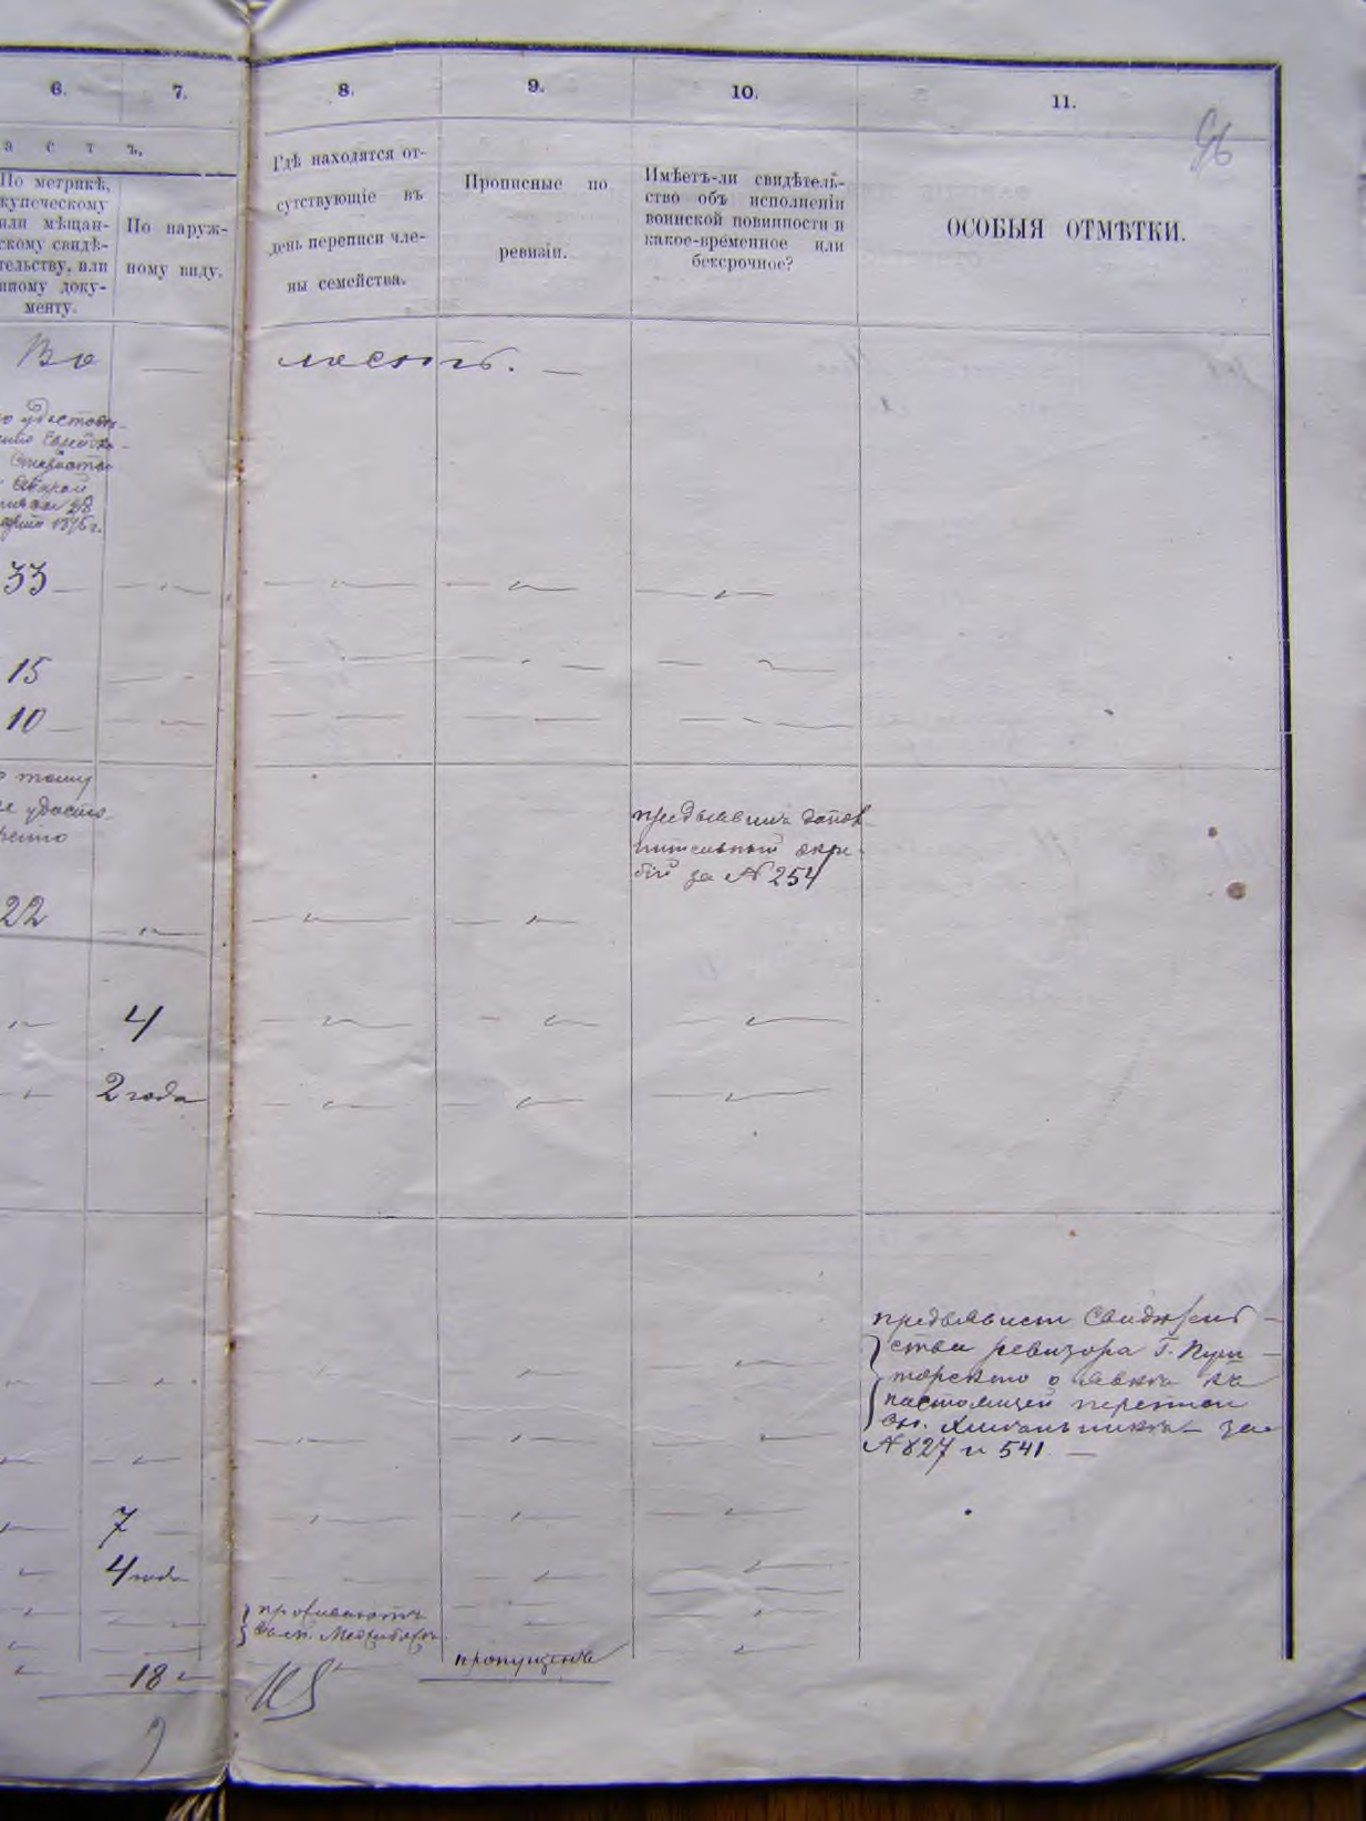 6.
7.
8.
9.
10.
11.
96
а с т ъ.
По метрикѣ,
купеческому
или мѣщан-
скому свидѣ-
тельству, или
иному доку-
менту.
По наруж-
ному виду.
Гдѣ находятся от-
сутствующіе въ
день переписи чле-
ны семейства.
Прописные по
ревизіи.
Имѣетъ-ли свидѣтель-
ство объ исполненіи
воинской повинности и
какое-временное или
безсрочное?
ОСОБЫЯ ОТМѢТКИ.
Во
лость.
1875 г.
33
15
10
тому
же удосто-
предъявилъ
за № 254
22
4
2 года
предъявилъ свидѣтель-
ства ревизора Г.
о явкѣ къ
настоящей переписи
за
№ 827 и 541
7
4 года
проживаютъ
въ м. Меджибожѣ
пропущенъ
18